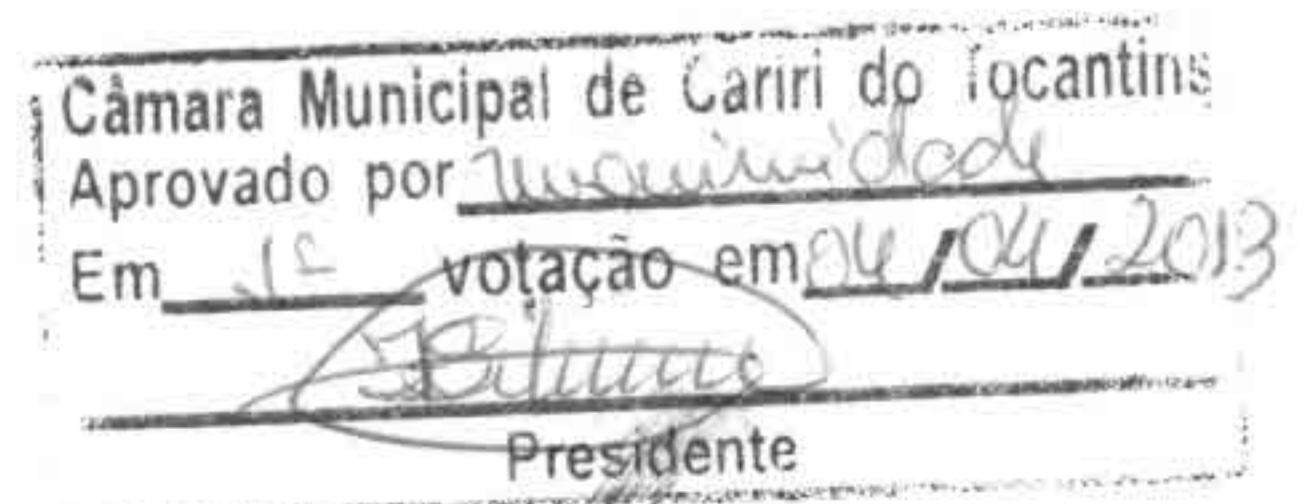 Câmara Municipal de Cariri do Tocantins
Aprovado por unanimidade
Em 1ª votação em 04/04/2013
Presidente